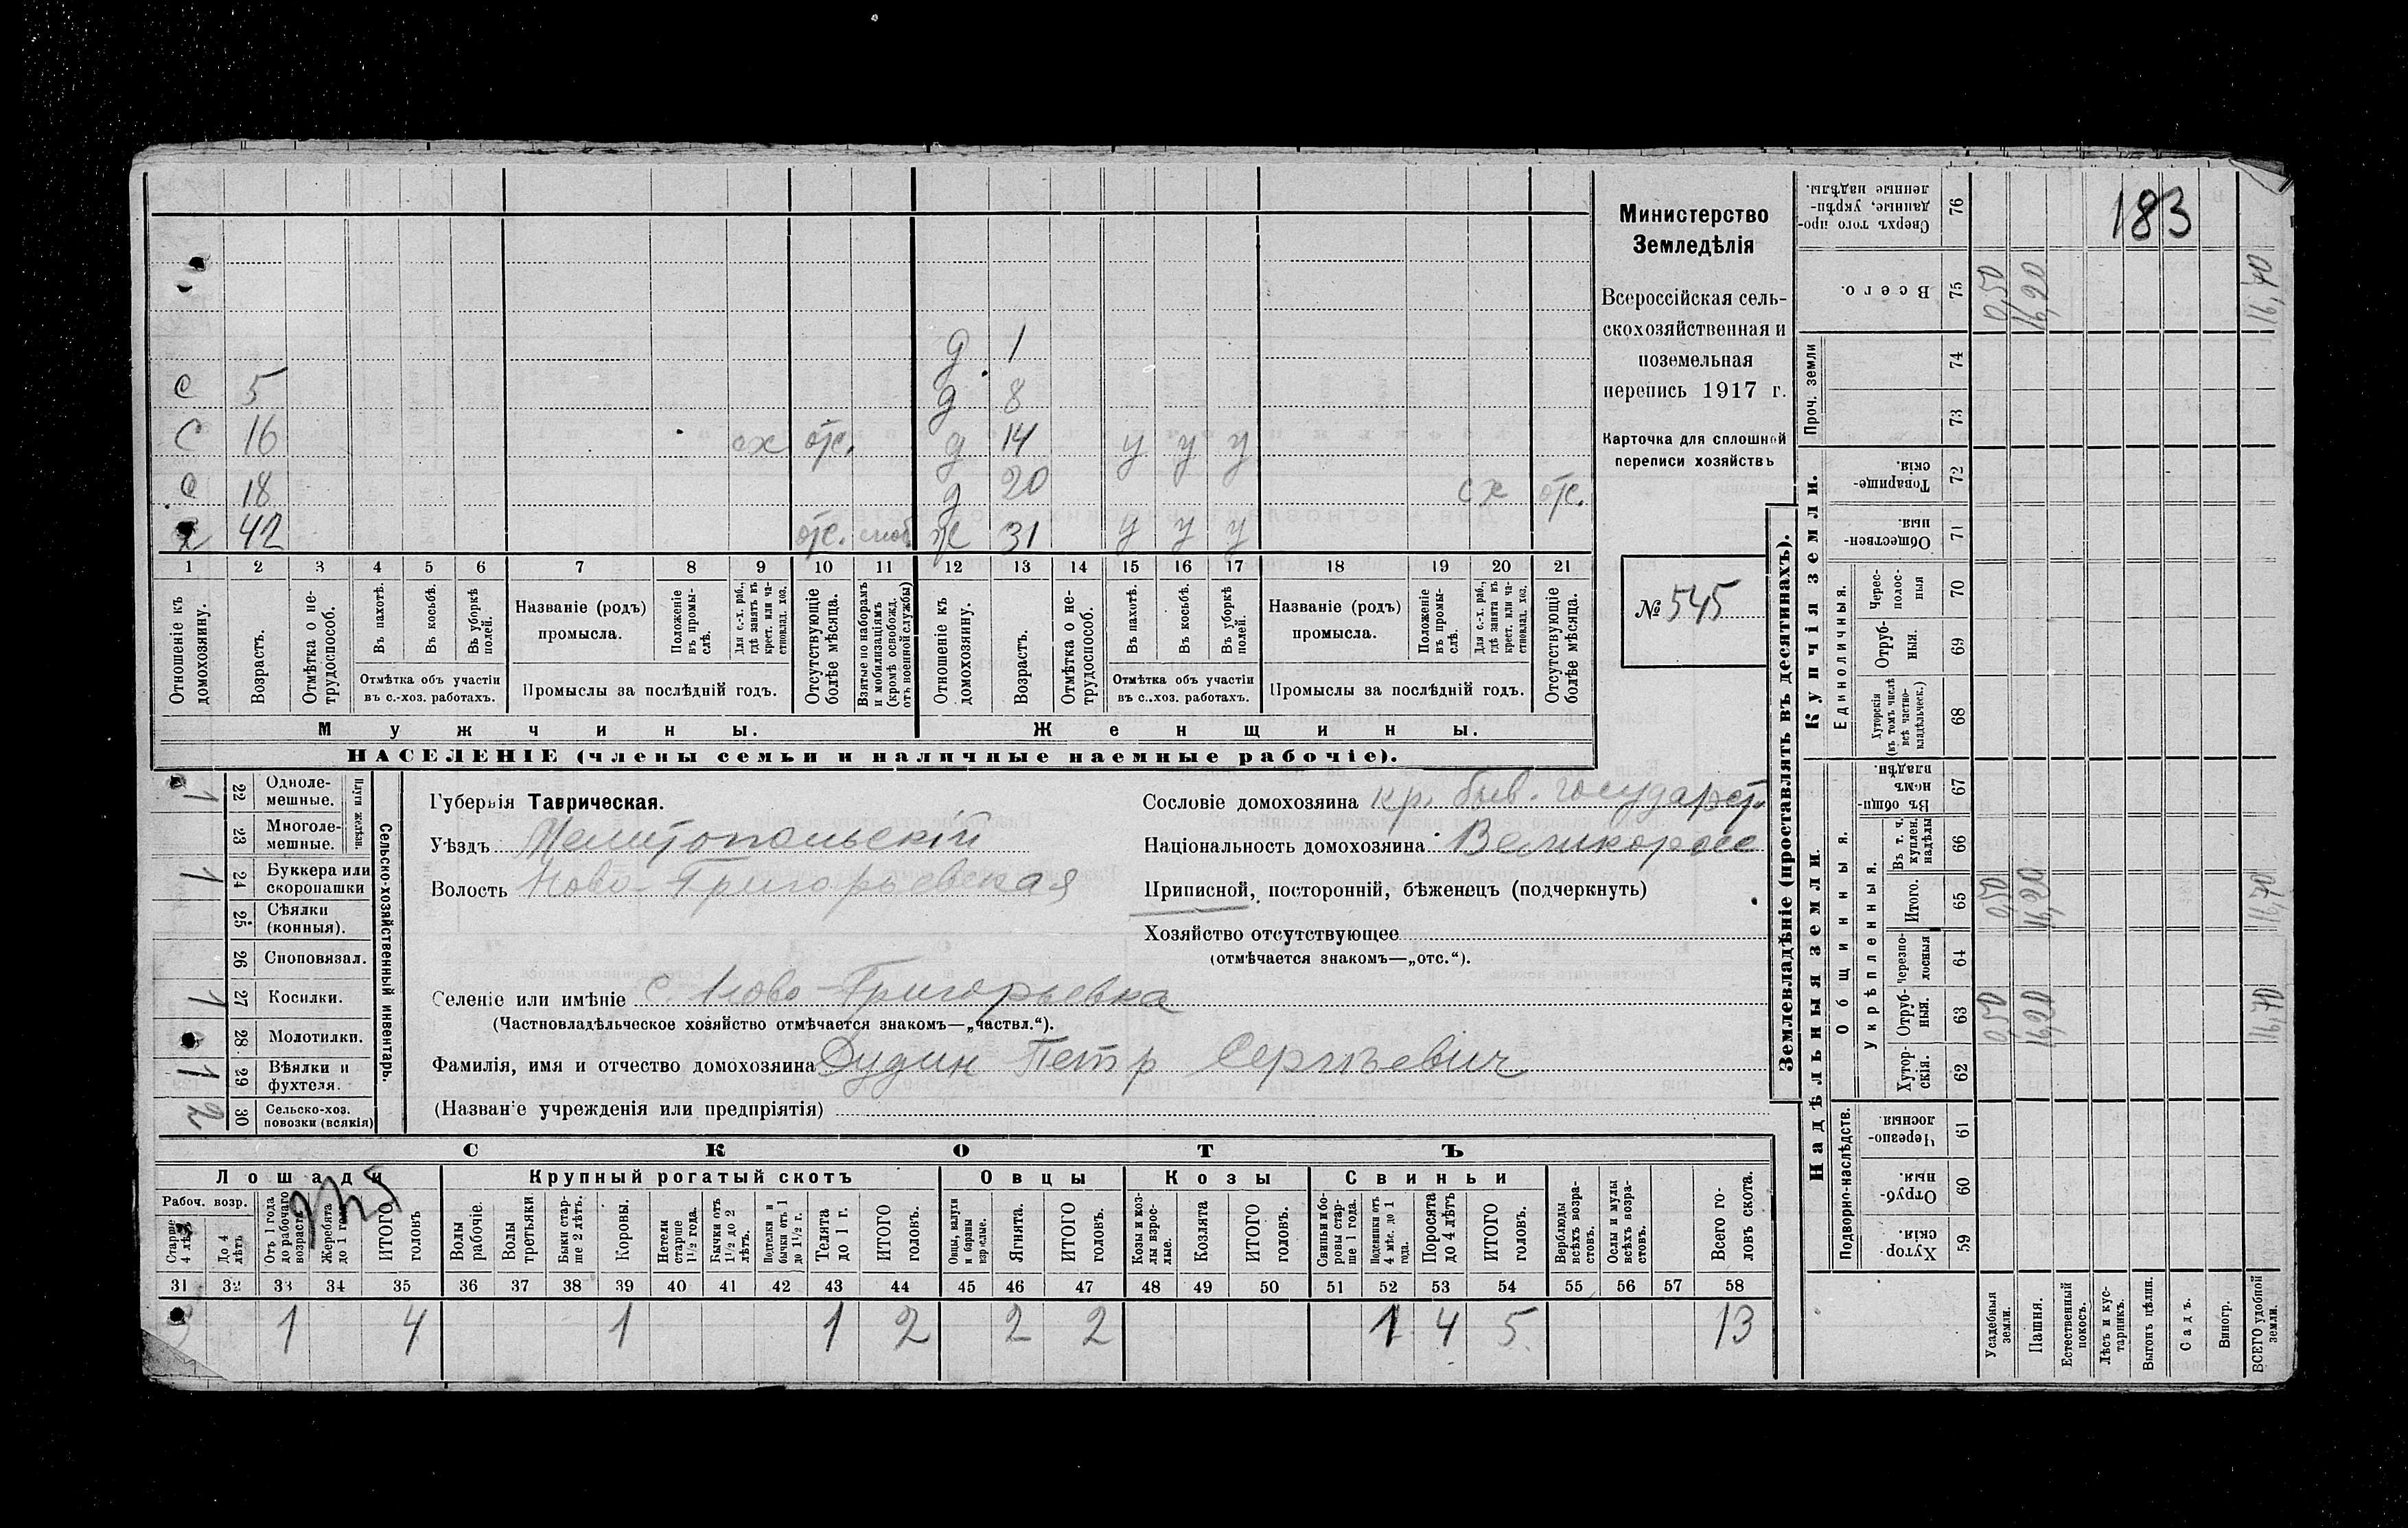 183
Министерство
Земледѣлія
Всероссійская сель-
скохозяйственная и
поземельная
перепись 1917 г.
Карточка для сплошной
переписи хозяйствъ
№ 545
д 1
с 5 д 8
с 16 сх отс. д 14 у у у
с 18 д 20 сх отс.
х 42 отс. моб. ж 31 у у у
1 2 3 4 5 6 7 8 9 10 11 12 13 14 15 16 17 18 19 20 21
Отношеніе къ домохозяину.
Возрастъ.
Отмѣтка о не-трудоспособ.
Въ пахотѣ.
Въ косьбѣ.
Въ уборкѣ полей.
Отмѣтка объ участіи
въ с.-хоз. работахъ.
Названіе (родъ)
промысла.
Положеніе въ промы-слѣ.
Для с.-х. раб., гдѣ занятъ въ крест. или ча-стновлад. хоз.
Промыслы за послѣдній годъ.
Отсутствующіе болѣе мѣсяца.
Взятые по наборамъ и мобилизаціямъ (кромѣ освобожд. отъ военной службы)
Отношеніе къ домохозяину.
Возрастъ.
Отмѣтка о не-трудоспособ.
Въ пахотѣ.
Въ косьбѣ.
Въ уборкѣ полей.
Отмѣтка объ участіи
въ с.-хоз. работахъ.
Названіе (родъ)
промысла.
Положеніе въ промы-слѣ.
Для с.-х. раб., гдѣ занята въ крест. или ча-стновлад. хоз.
Промыслы за послѣдній годъ.
Отсутствующіе болѣе мѣсяца.
Мужчины. Женщины.
НАСЕЛЕНІЕ (члены семьи и наличные наемные рабочіе).
Сельско-хозяйственный инвентарь.
Плуги желѣзн.
1 22 Одноле-мешные.
23 Многоле-мешные.
1 24 Буккера или скоропашки
25 Сѣялки (конныя).
26 Сноповязал.
1 27 Косилки.
28 Молотилки.
1 29 Вѣялки и фухтеля.
2 30 Сельско-хоз. повозки (всякія)
Губернія Таврическая.
Уѣздъ Мелитопольскій
Волость Ново-Григорьевская
Селеніе или имѣніе с. Ново-Григорьевка
(Частновладѣльческое хозяйство отмѣчается знакомъ—„частвл.“).
Фамилія, имя и отчество домохозяина Дудин Петр Сергѣевич
(Названіе учрежденія или предпріятія)
Сословіе домохозяина кр. быв. государст.
Національность домохозяина Великоросс
Приписной, посторонній, бѣженецъ (подчеркнуть)
Хозяйство отсутствующее
(отмѣчается знакомъ—„отс.“).
СКОТЪ
Лошади Крупный рогатый скотъ Овцы Козы Свиньи
Рабоч. возр.
Старше 4 лѣтъ
До 4 лѣтъ
Отъ 1 года до рабочаго возраста
Жеребята до 1 года
ИТОГО головъ
Волы рабочіе.
Волы третьяки
Быки стар-ше 2 лѣтъ.
Коровы.
Нетели старше 1½ года.
Бычки отъ 1½ до 2 лѣтъ.
Подтелки и бычки отъ 1 до 1½ г.
Телята до 1 г.
ИТОГО головъ.
Овцы, валухи и бараны взрослые.
Ягнята.
ИТОГО головъ.
Козы и коз-лы взрос-лые.
Козлята
ИТОГО головъ.
Свиньи и бо-ровы стар-ше 1 года.
Подсвинки отъ 4 мѣс. до 1 года.
Поросята до 4 лѣтъ
ИТОГО головъ.
Верблюды всѣхъ возра-стовъ.
Ослы и мулы всѣхъ возра-стовъ.
Всего го-ловъ скота.
31 32 33 34 35 36 37 38 39 40 41 42 43 44 45 46 47 48 49 50 51 52 53 54 55 56 57 58
3 1 4 1 1 2 2 2 1 4 5 13
Землевладѣніе (проставлять въ десятинахъ).
Надѣльныя земли. Купчія земли.
Подворно-наслѣдств.
Общинныя.
Укрѣпленныя.
Единоличныя.
Проч. земли
Хутор-скія. 59
Отруб-ныя. 60
Черезпо-лосныя 61
Хутор-скія. 62
Отруб-ныя. 63 0,50 16,20 16,70
Черезпо-лосныя 64
Итого. 65 0,50 16,20 16,70
Въ т. ч. куплен. надѣлы 66
Въ общи-номъ владѣн. 67
Хуторскія (въ томъ числѣ всѣ частно-владѣльческ.) 68
Отруб-ныя. 69
Черес-полос-ныя 70
Обществен-ныя. 71
Товарище-скія. 72
73
74
Всего. 75 0,50 16,20 16,70
Сверхъ того про-данные, укрѣп-ленные надѣлы. 76
Усадебныя земли.
Пашня.
Естественный покосъ.
Лѣсъ и кус-тарникъ.
Выгонъ цѣлин.
Садъ.
Виногр.
ВСЕГО удобной земли.